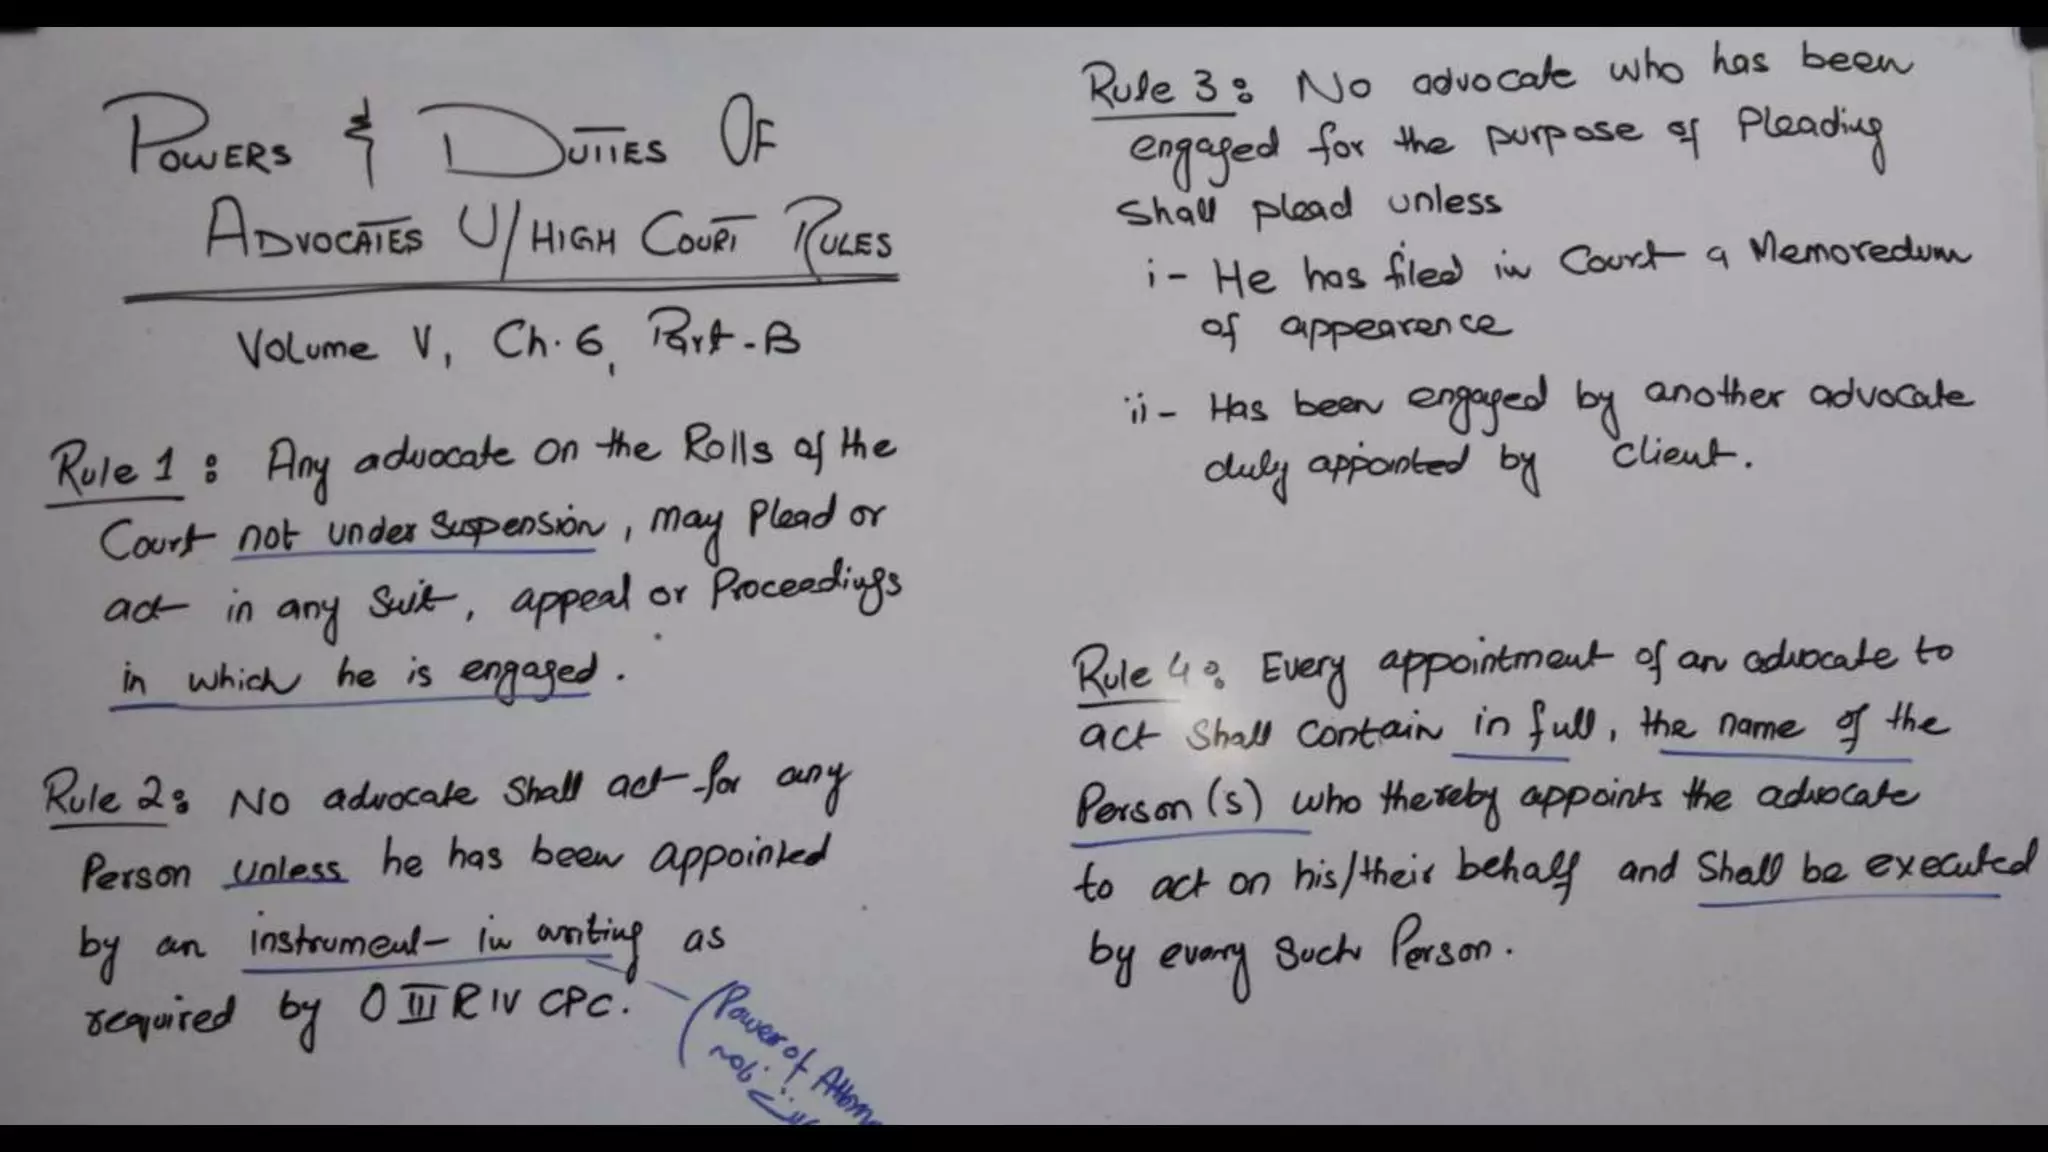 POWERS & DUTIES OF
ADVOCATES U/HIGH COURT RULES
Volume V, Ch. 6, Part-B
Rule 1: Any advocate on the Rolls of the
Court not under suspension, may Plead or
act in any Suit, appeal or Proceedings
in which he is engaged.
Rule 2: No advocate Shall act for any
Person unless he has been appointed
by an instrument in writing as
required by O III R IV CPC.
(Power of Attorn
not
Rule 3: No advocate who has been
engaged for the purpose of Pleading
Shall plead unless
i- He has filed in Court a Memoredum
of appearence
ii- Has been engaged by another advocate
duly appointed by client.
Rule 4: Every appointment of an advocate to
act Shall Contain in full, the name of the
Person(s) who thereby appoints the advocate
to act on his/their behalf and Shall be executed
by every Such Person.